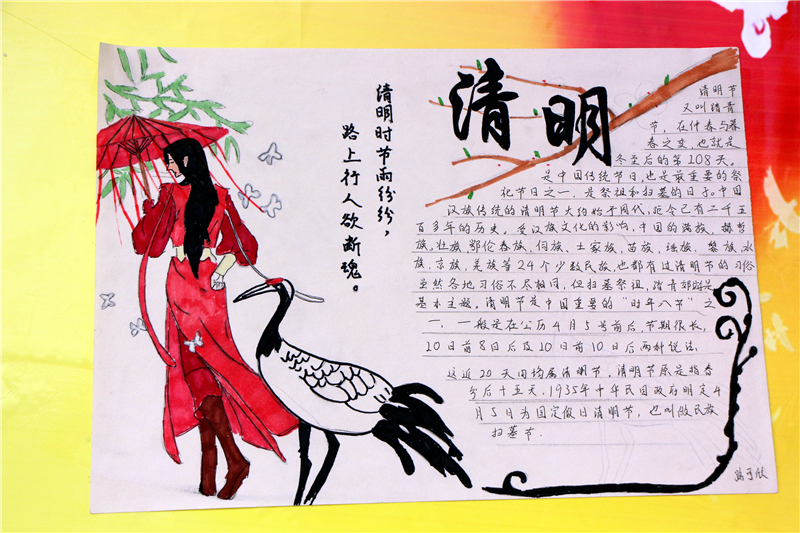 清明
清明时节雨纷纷，
路上行人欲断魂。
清明节
又叫踏青
节，在仲春与暮
春之交，也就是
冬至后的第108天。
是中国传统节日，也是最重要的祭
祀节日之一，是祭祖和扫墓的日子。中国
汉族传统的清明节大约始于周代，距今已有二千五
百多年的历史。受汉族文化的影响，中国的满族、赫哲
族、壮族、鄂伦春族、侗族、土家族、苗族、瑶族、黎族、水
族、京族、羌族等24个少数民族，也都有过清明节的习俗
虽然各地习俗不尽相同，但扫墓祭祖，踏青郊游是
基本主题。清明节是中国重要的“时年八节”之
一，一般是在公历4月5号前后，节期很长，
10日前8日后及10日前10日后两种说法
这近20天内均属清明节，清明节原是指春
分后十五天，1935年中华民国政府明定4
月5日为国定假日清明节，也叫做民族
扫墓节.